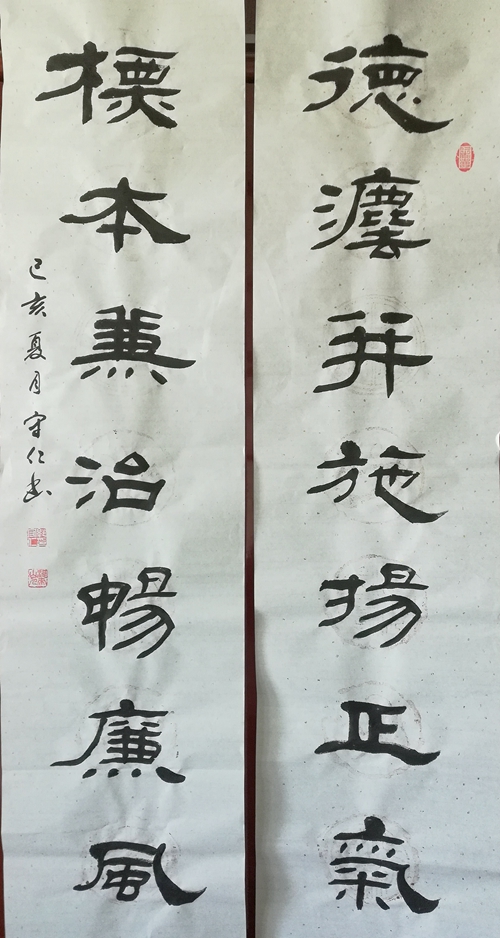 德灋并施揚正氣
標本兼治暢廉風
己亥夏月守仁書